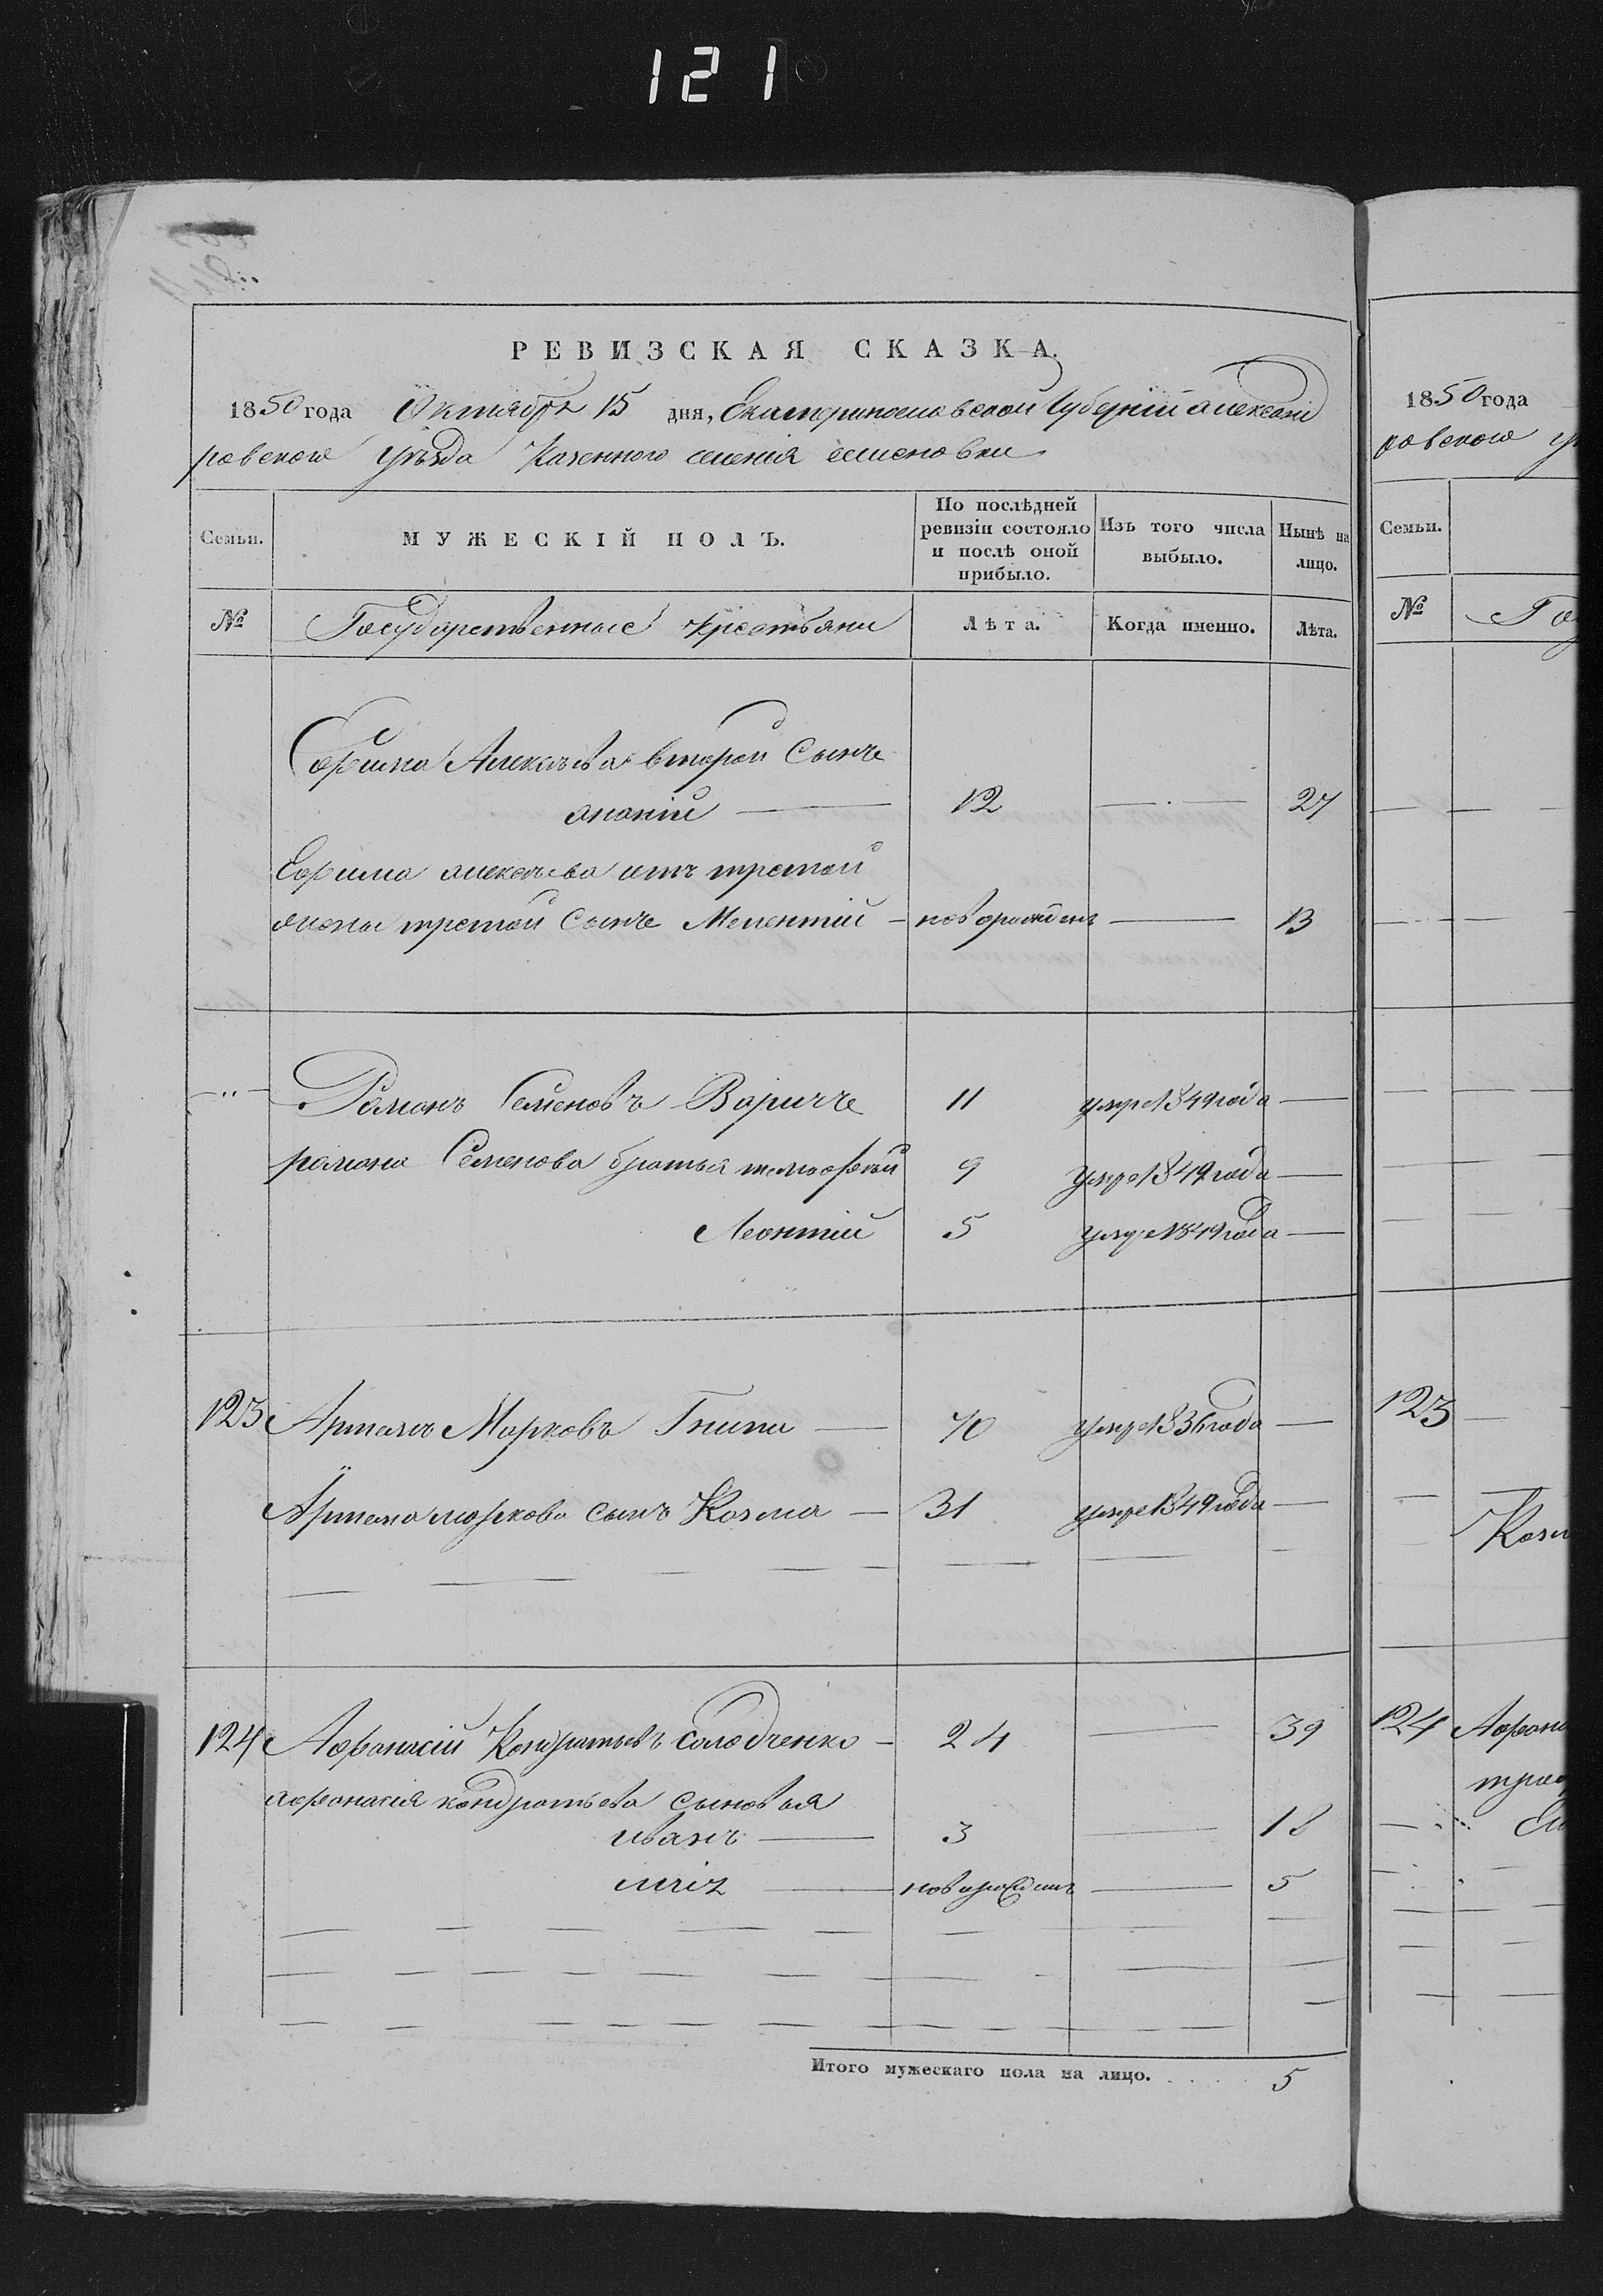 121
РЕВИЗСКАЯ СКАЗКА.
1850 года Октября 15 дня, Екатеринославской Губерніи Александ
ровского уѣзда Казенного селенія
Семьи. МУЖЕСКІЙ ПОЛЪ. По послѣдней ревизіи состояло и послѣ оной прибыло. Изъ того числа выбыло. Нынѣ на лицо.
№ Государственные крестьяни Лѣта. Когда именно. Лѣта.
Ефима Алексѣева второй Сынъ
ананій 12 27
Ефима алексѣева отъ третой
жоны третой Сынъ Мелентій новорожденъ 13
Романъ Семеновъ Варичъ 11 умре 1849 года
романа Семенова братья тимофей 9 умре 1849 года
Леонтій 5 умре 1849 года
123 Артемъ Марковъ Гнипа 70 умре 1836 года
Артема маркова сынъ Козма 31 умре 1849 года
124 Афанасій Кондратьевъ Солодченко 24 39
афанасія кондратьева сыновья
иванъ 3 18
новорожденъ 5
Итого мужескаго пола на лицо. 5
1850 года
ровского у
Семьи.
№ Го
123
Козм
124 Афана